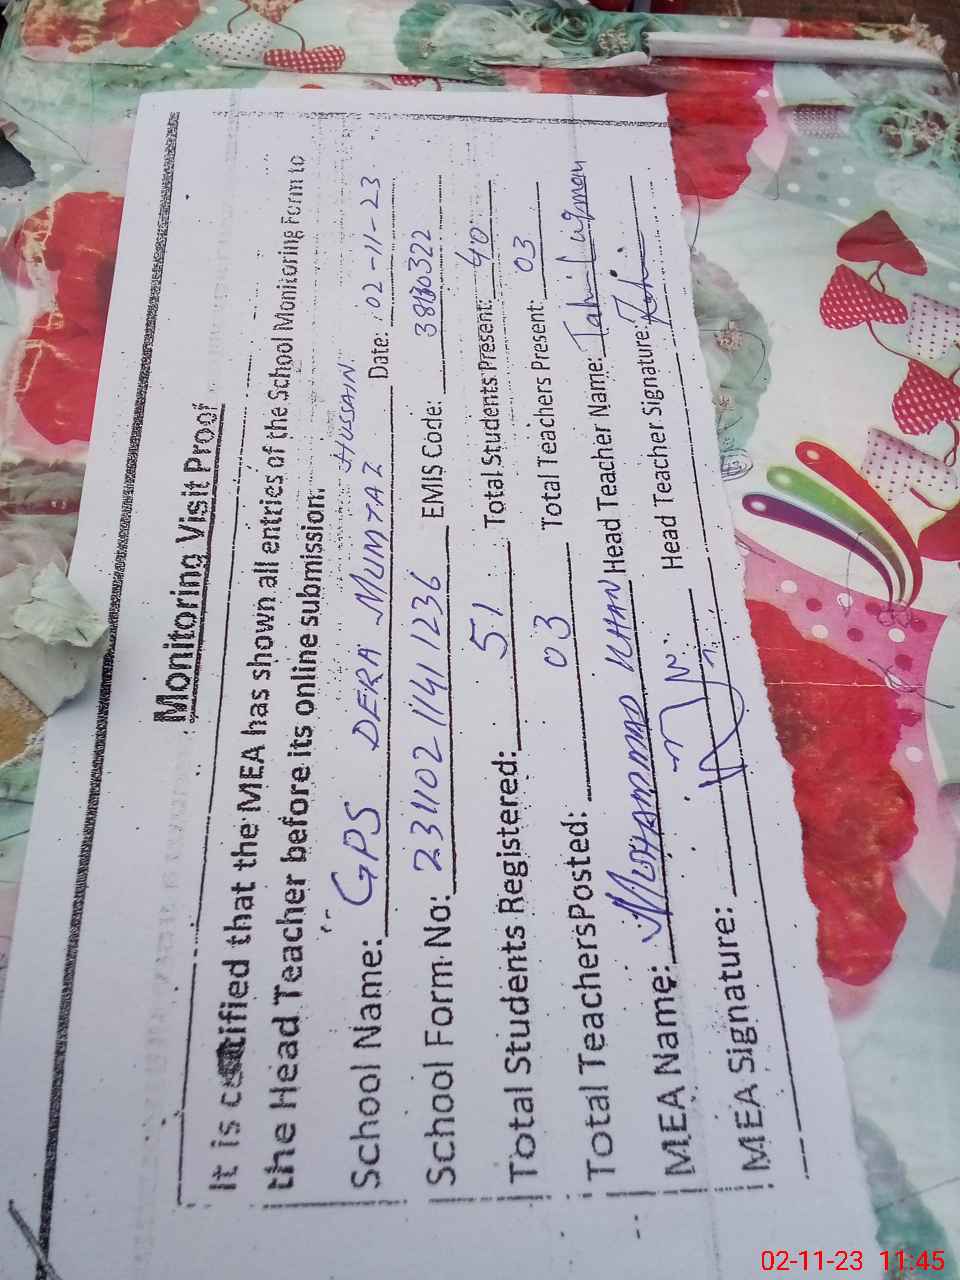 Monitoring Visit Proof
It is certified that the MEA has shown all entries of the School Monitoring Form to
the Head Teacher before its online submission.
School Name: GPS DERA MUMTAZ HUSSAIN Date: 02-11-23
School Form No: 23110211411236 EMIS Code:
Total Students Registered: 51 Total Students Present: 40
Total Teachers Posted: 03 Total Teachers Present: 03
MEA Name: MUHAMMAD KHAN Head Teacher Name: Tahir Luqman
MEA Signature: Head Teacher Signature:
02-11-23 11:45